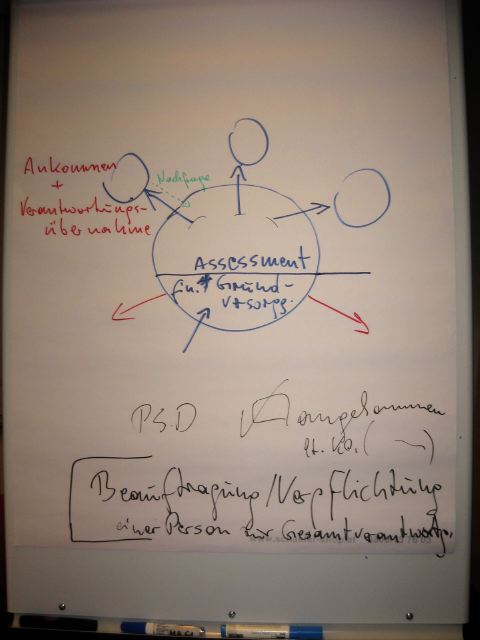 Ankommen
+
Verantwortungs-
übernahme
Nachfrage
Assessment
fin. Grund-
versorg.
PS.D
angekommen
Beauftragung/Verpflichtung
einer Person zur Gesamtverantwortg.